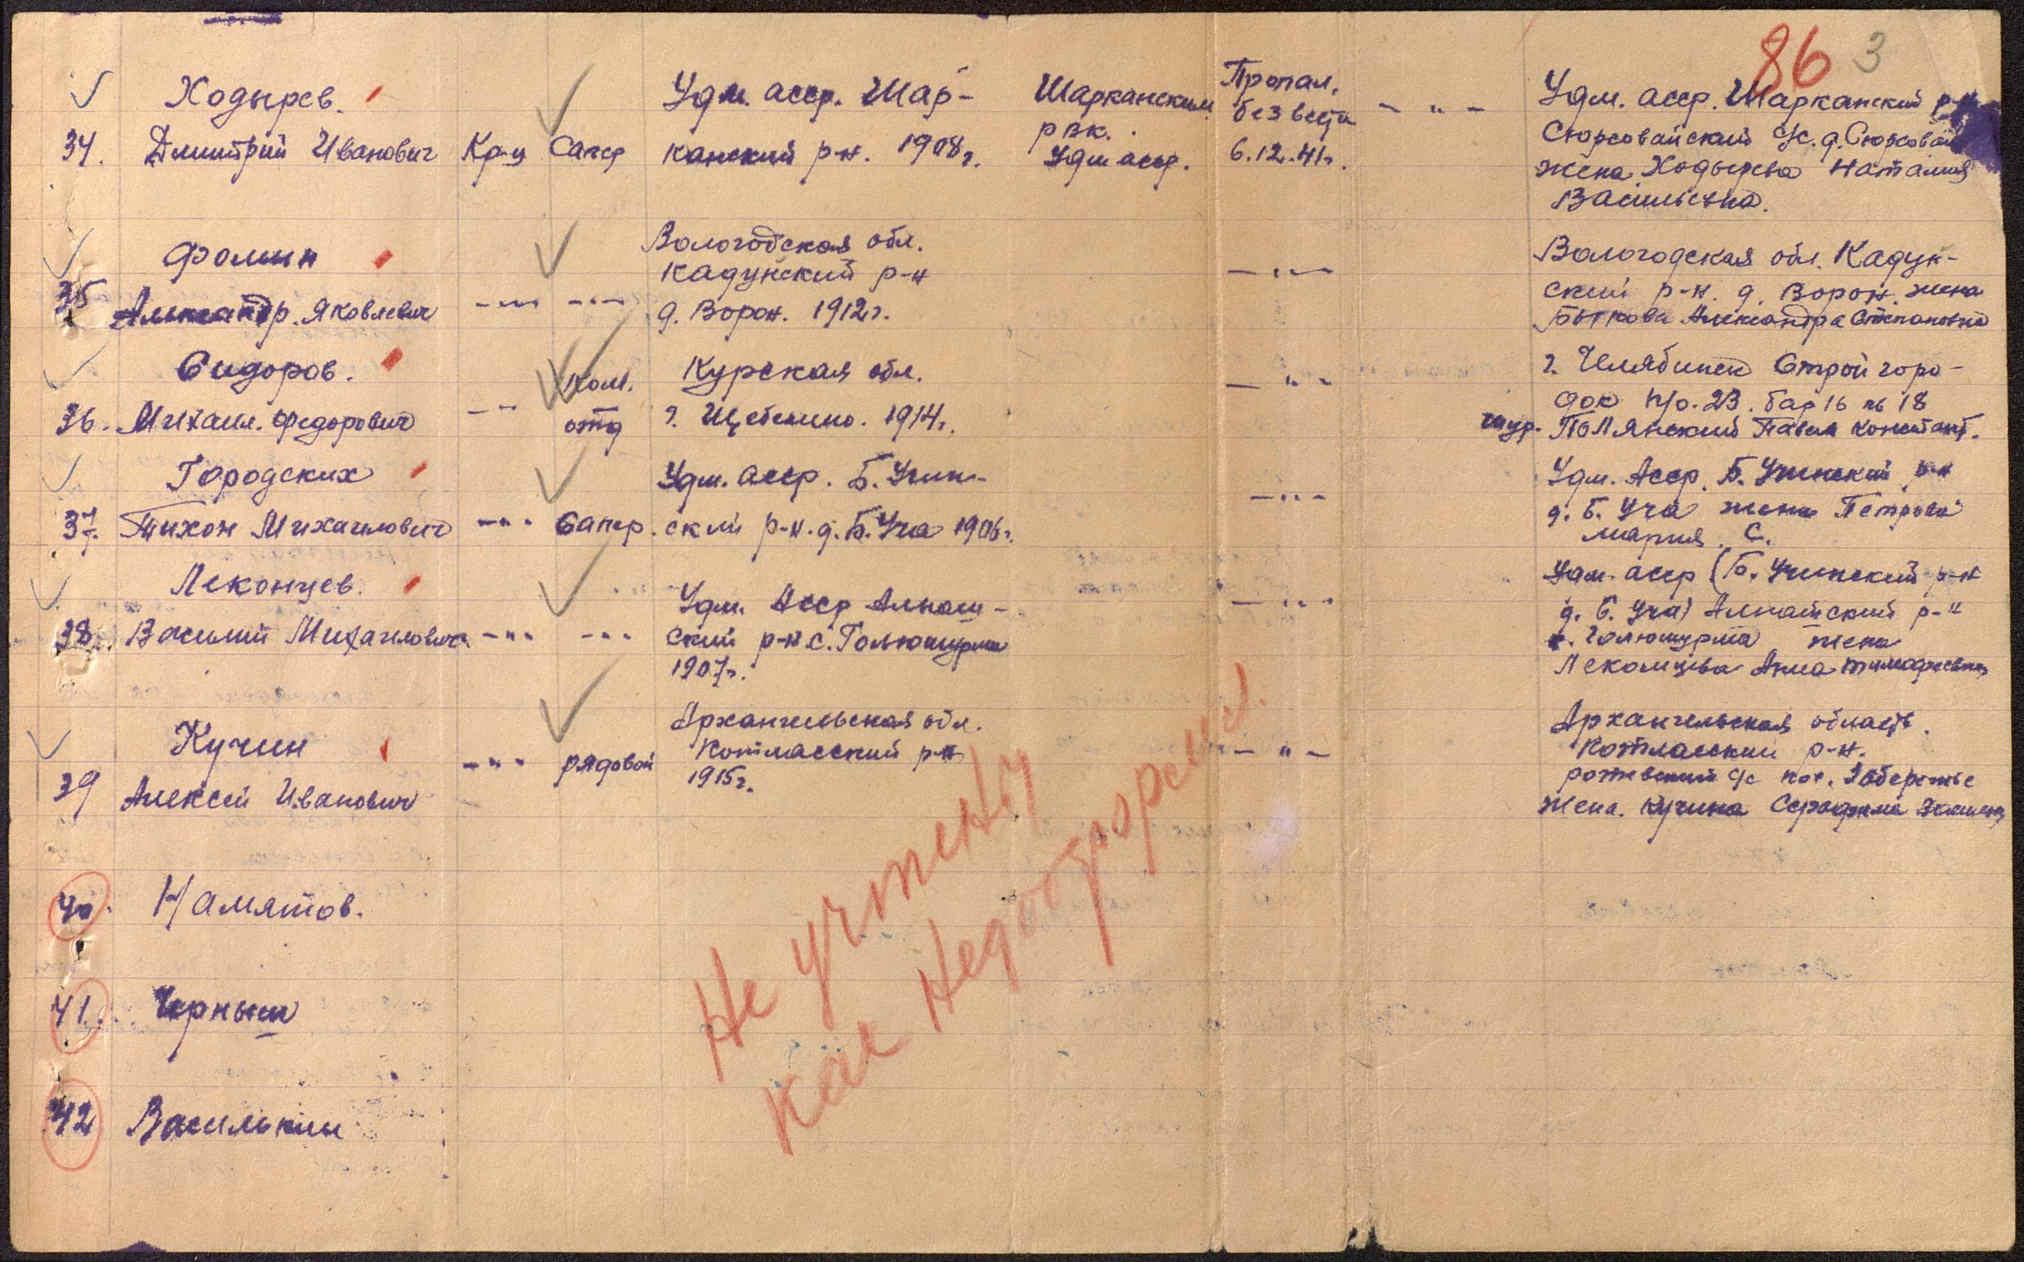 86 3
Ходырев.
34. Дмитрий Иванович Кр-ц Сапер
Удм. асср. Шар-
канский р-н. 1908г.
Шарканским
рвк.
Удм асср.
Пропал.
без вести
6.12.41г.
- " -
Удм. асср. Шарканский р-н
Сюрсовайский с/с. д. Сюрсовай
жена Ходырева Наталия
Васильевна.
Фомин
35 Александр. Яковлевич -"- -"-
Вологодская обл.
Кадуйский р-н
д. Ворон. 1912г.
-"-
Вологодская обл. Кадуй-
ский р-н. д. Ворон. жена
Александра Степановна
Сидоров.
36. Михаил. Федорович -"-
ком.
отд
Курская обл.
г. Щебекино. 1914г.
- " -
г. Челябинск Строй горо-
док п/о. 23. бар 16 кв 18
шур. Полянский Павел Констант.
Городских
37. Тихон Михайлович -"- Сапер.
Удм. асср. Б. Учин-
ский р-н. д. Б. Уча 1906г.
-"-
Удм. Асср. Б. Учинский р-н
д. Б. Уча жена Петрова
Мария. С.
Леконцев.
38. Василий Михайлович -"- -"-
Удм. Асср Алнаш-
ский р-н с. Голюшурма
1907г.
-"-
Удм. асср (Б. Учинский р-н
д. Б. Уча) Алнашский р-н
с. Голюшурма жена
Лекомцева Анна Тимофеевна
Кучин
39 Алексей Иванович -"- рядовой
Архангельская обл.
Котласский р-н
1915г.
- " -
Архангельская область.
Котласский р-н.
с/с
жена. Кучина Серафима
40. Намятов.
41. Черных
42 Василькин
Не учтены
как Недооформл.